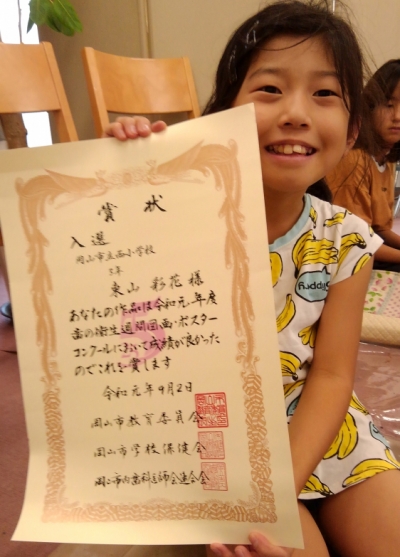 賞状
入選
岡山市立西小学校
3年
東山 彩花 様
あなたの作品は令和元年度
歯の衛生週間図画・ポスター
コンクールにおいて成績が良かった
のでこれを賞します
令和元年9月2日
岡山市教育委員会
岡山市学校保健会
岡山市内歯科医師会連合会